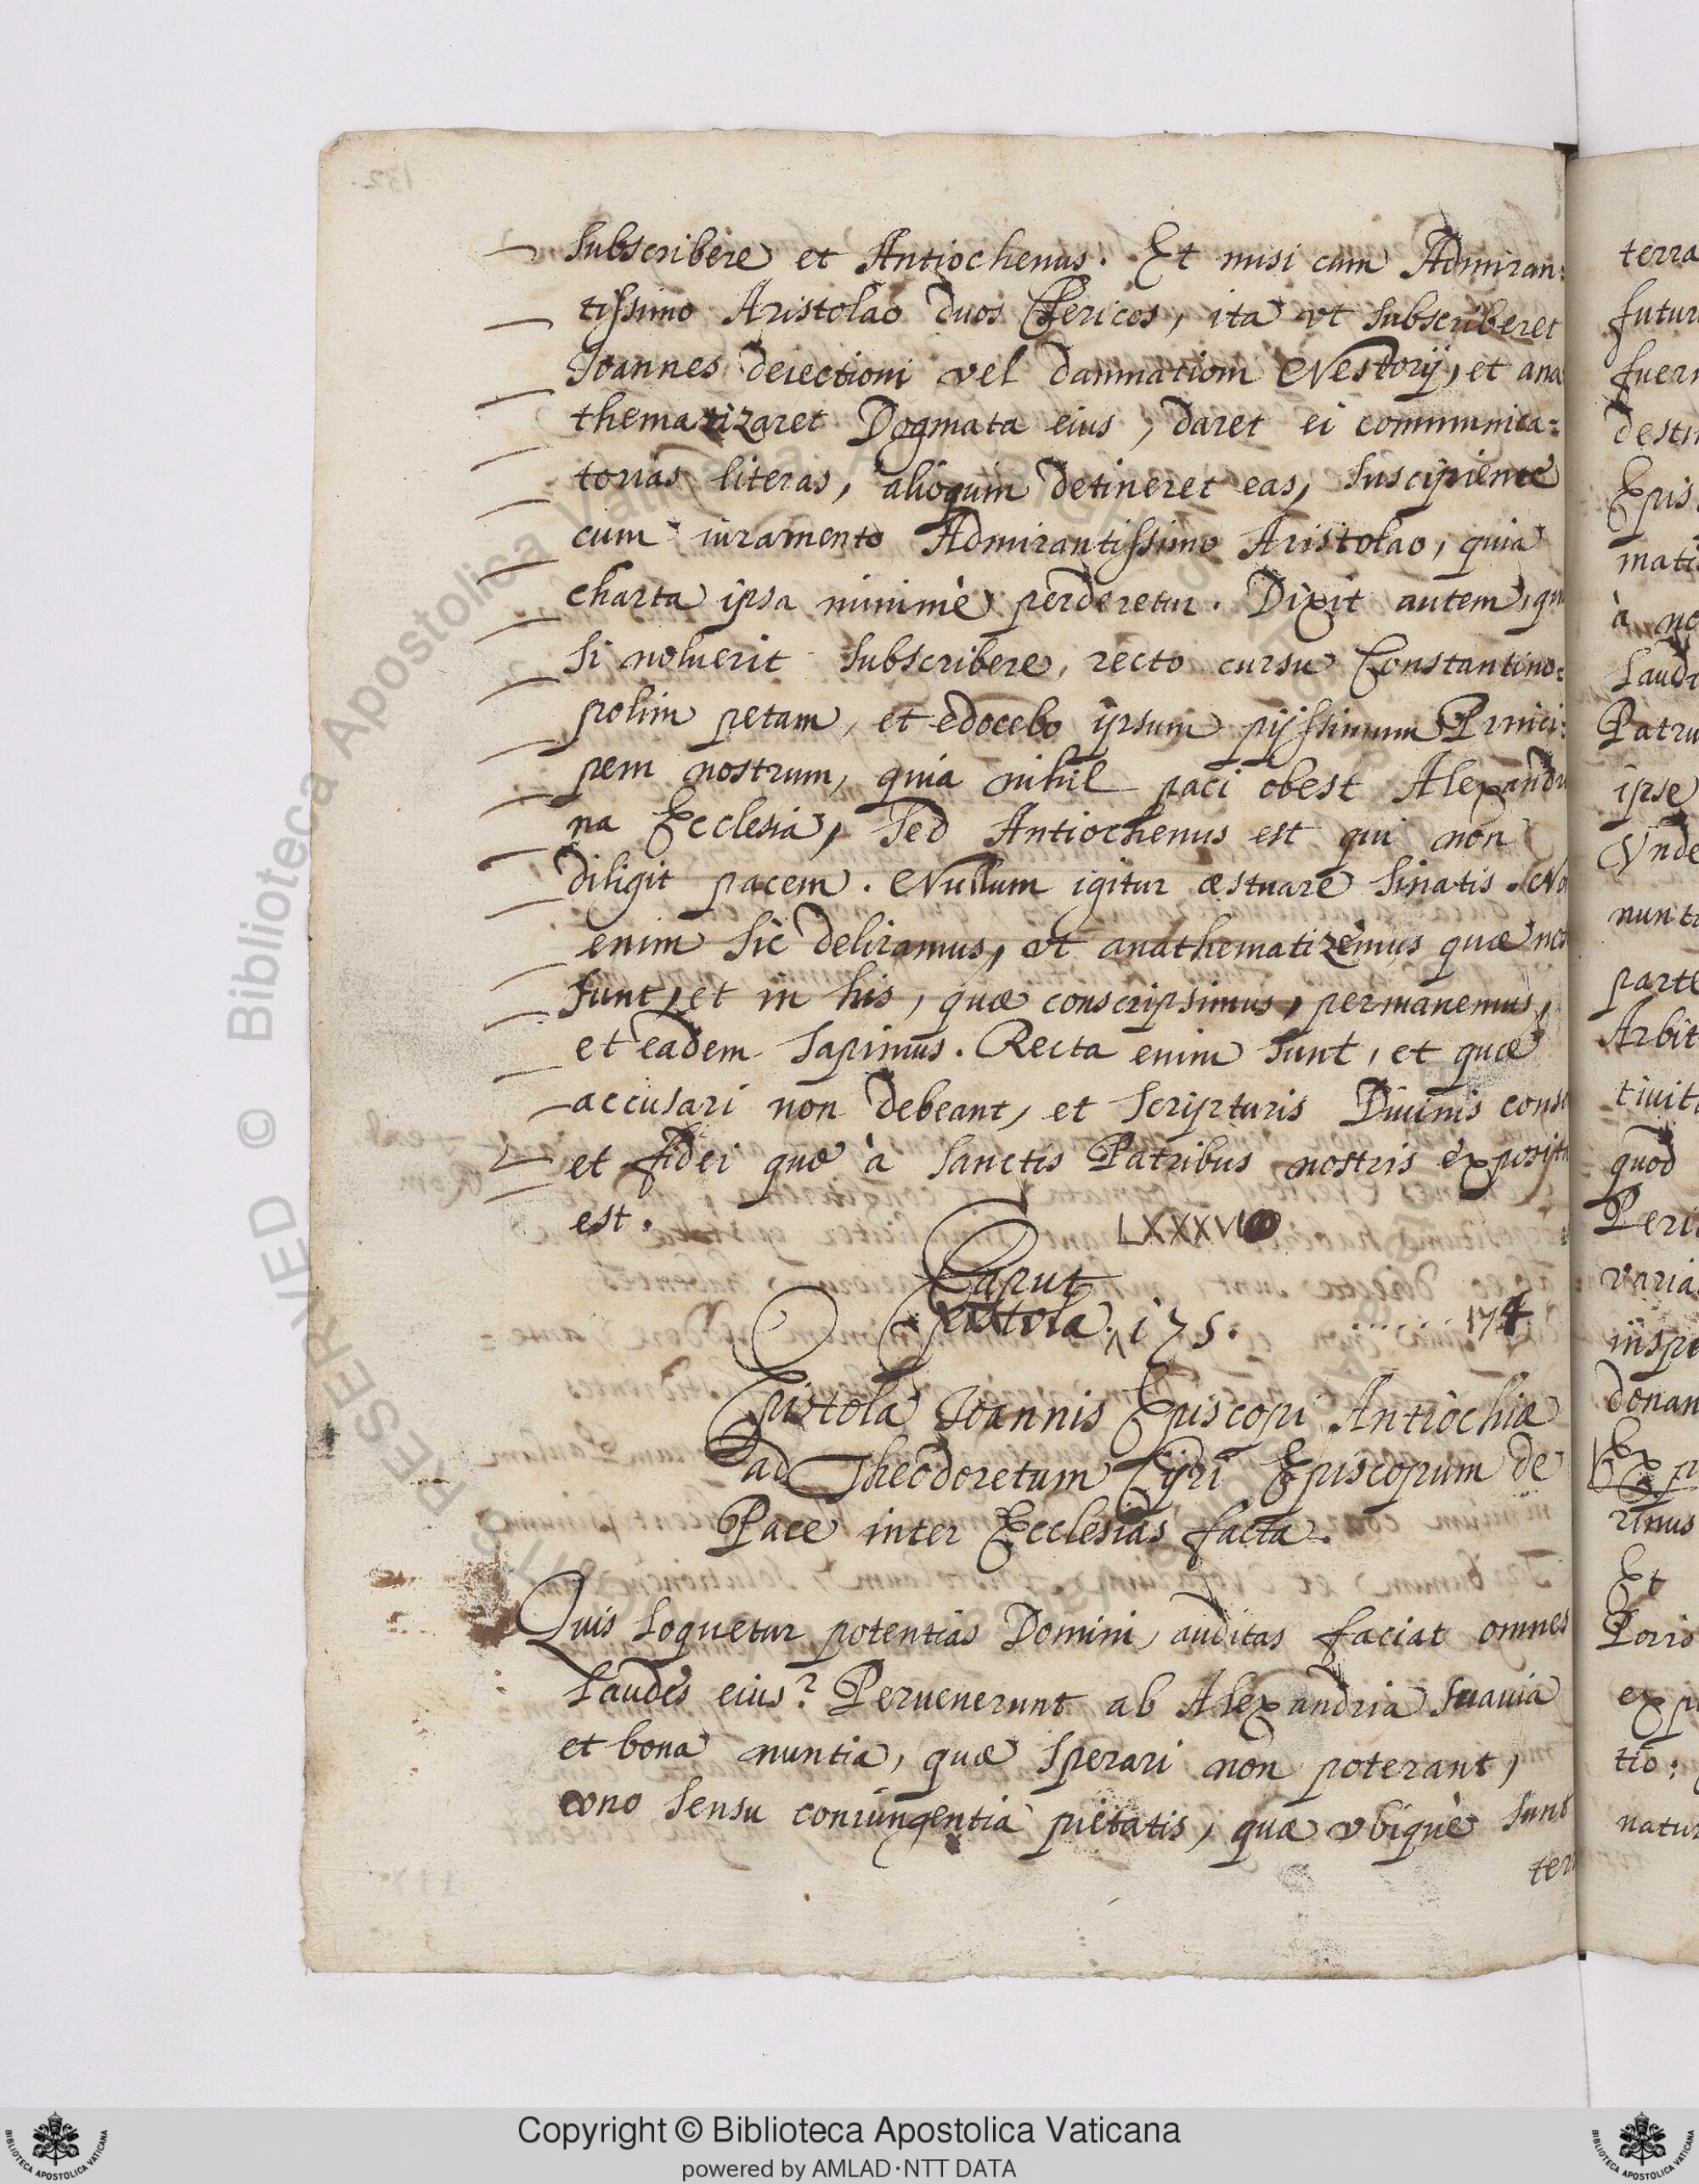 subscribere et Antiochenus. Et misi cum Admiran:
tissimo Aristolao duos Clericos, ita vt subscriberet
Ioannes deiectioni vel damnationi Nestorij, et ana
thematizaret Dogmata eius, daret ei communica=
torias literas, alioquin detineret eas, suscipiente
cum iuramento Admirantissimo Aristolao, quia
charta ipsa minimè perderetur. Dixit autem,
si noluerit subscribere, recto cursu Constantino=
polim petam, et edocebo ipsum pijssimum Princi:
pem nostrum, quia nihil paci obest Alexandri
na Ecclesia, sed Antiochenus est qui non
diligit pacem. Nullum igitur æstuare sinatis. No
enim sic deliramus, vt anathematizemus quæ non
sunt, et in his, quæ conscripsimus, permanemus,
et eadem sapimus. Recta enim sunt, et quæ
accusari non debeant, et scripturis Diuinis conso
et fidei quæ à sanctis Patribus nostris exposita
est.
LXXXVI
Caput
Epistola. 175. ...... 174
Epistola Ioannis Episcopi Antiochiæ
ad Theodoretum Cyri Episcopum de
Pace inter Ecclesias facta.
Quis loquetur potentias Domini, auditas faciat omnes
laudes eius? Peruenerunt ab Alexandria suauia
et bona nuntia, quæ sperari non poterant,
vno sensu coniungentia pietatis, quæ vbiquè sunt
terr
terra
futur
fuer
destr
Epis
mati
à no
laud
Patru
ipse
Vnde
nunt
parte
Arbit
tiuit
quod
Peri
varia
inspe
donan
Exp
rimus
Et
Porro
exp
tio:
natur
132
© Biblioteca Apostolica Vaticana
Copyright © Biblioteca Apostolica Vaticana
powered by AMLAD·NTT DATA
BIBLIOTECA APOSTOLICA VATICANA
BIBLIOTECA APOSTOLICA VATICANA